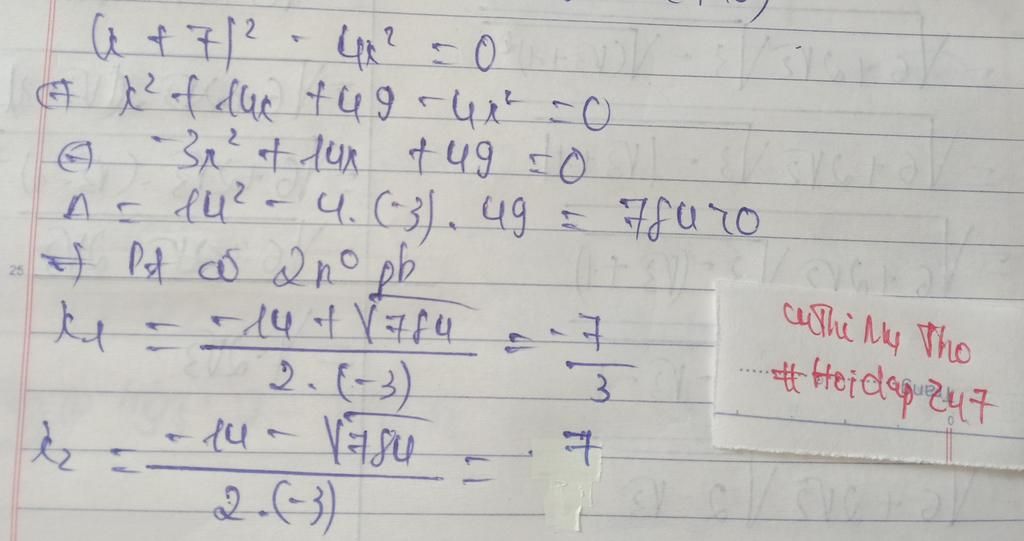 (x + 7)² - 4x² = 0
⇔ x² + 14x + 49 - 4x² = 0
⇔ -3x² + 14x + 49 = 0
Δ = 14² - 4.(-3).49 = 784 > 0
⇒ Pt có 2 n° pb
x₁ = (-14 + √784) / (2.(-3)) = -7/3
x₂ = (-14 - √784) / (2.(-3)) = 7
25
Thi My Tho
#Hoidap247